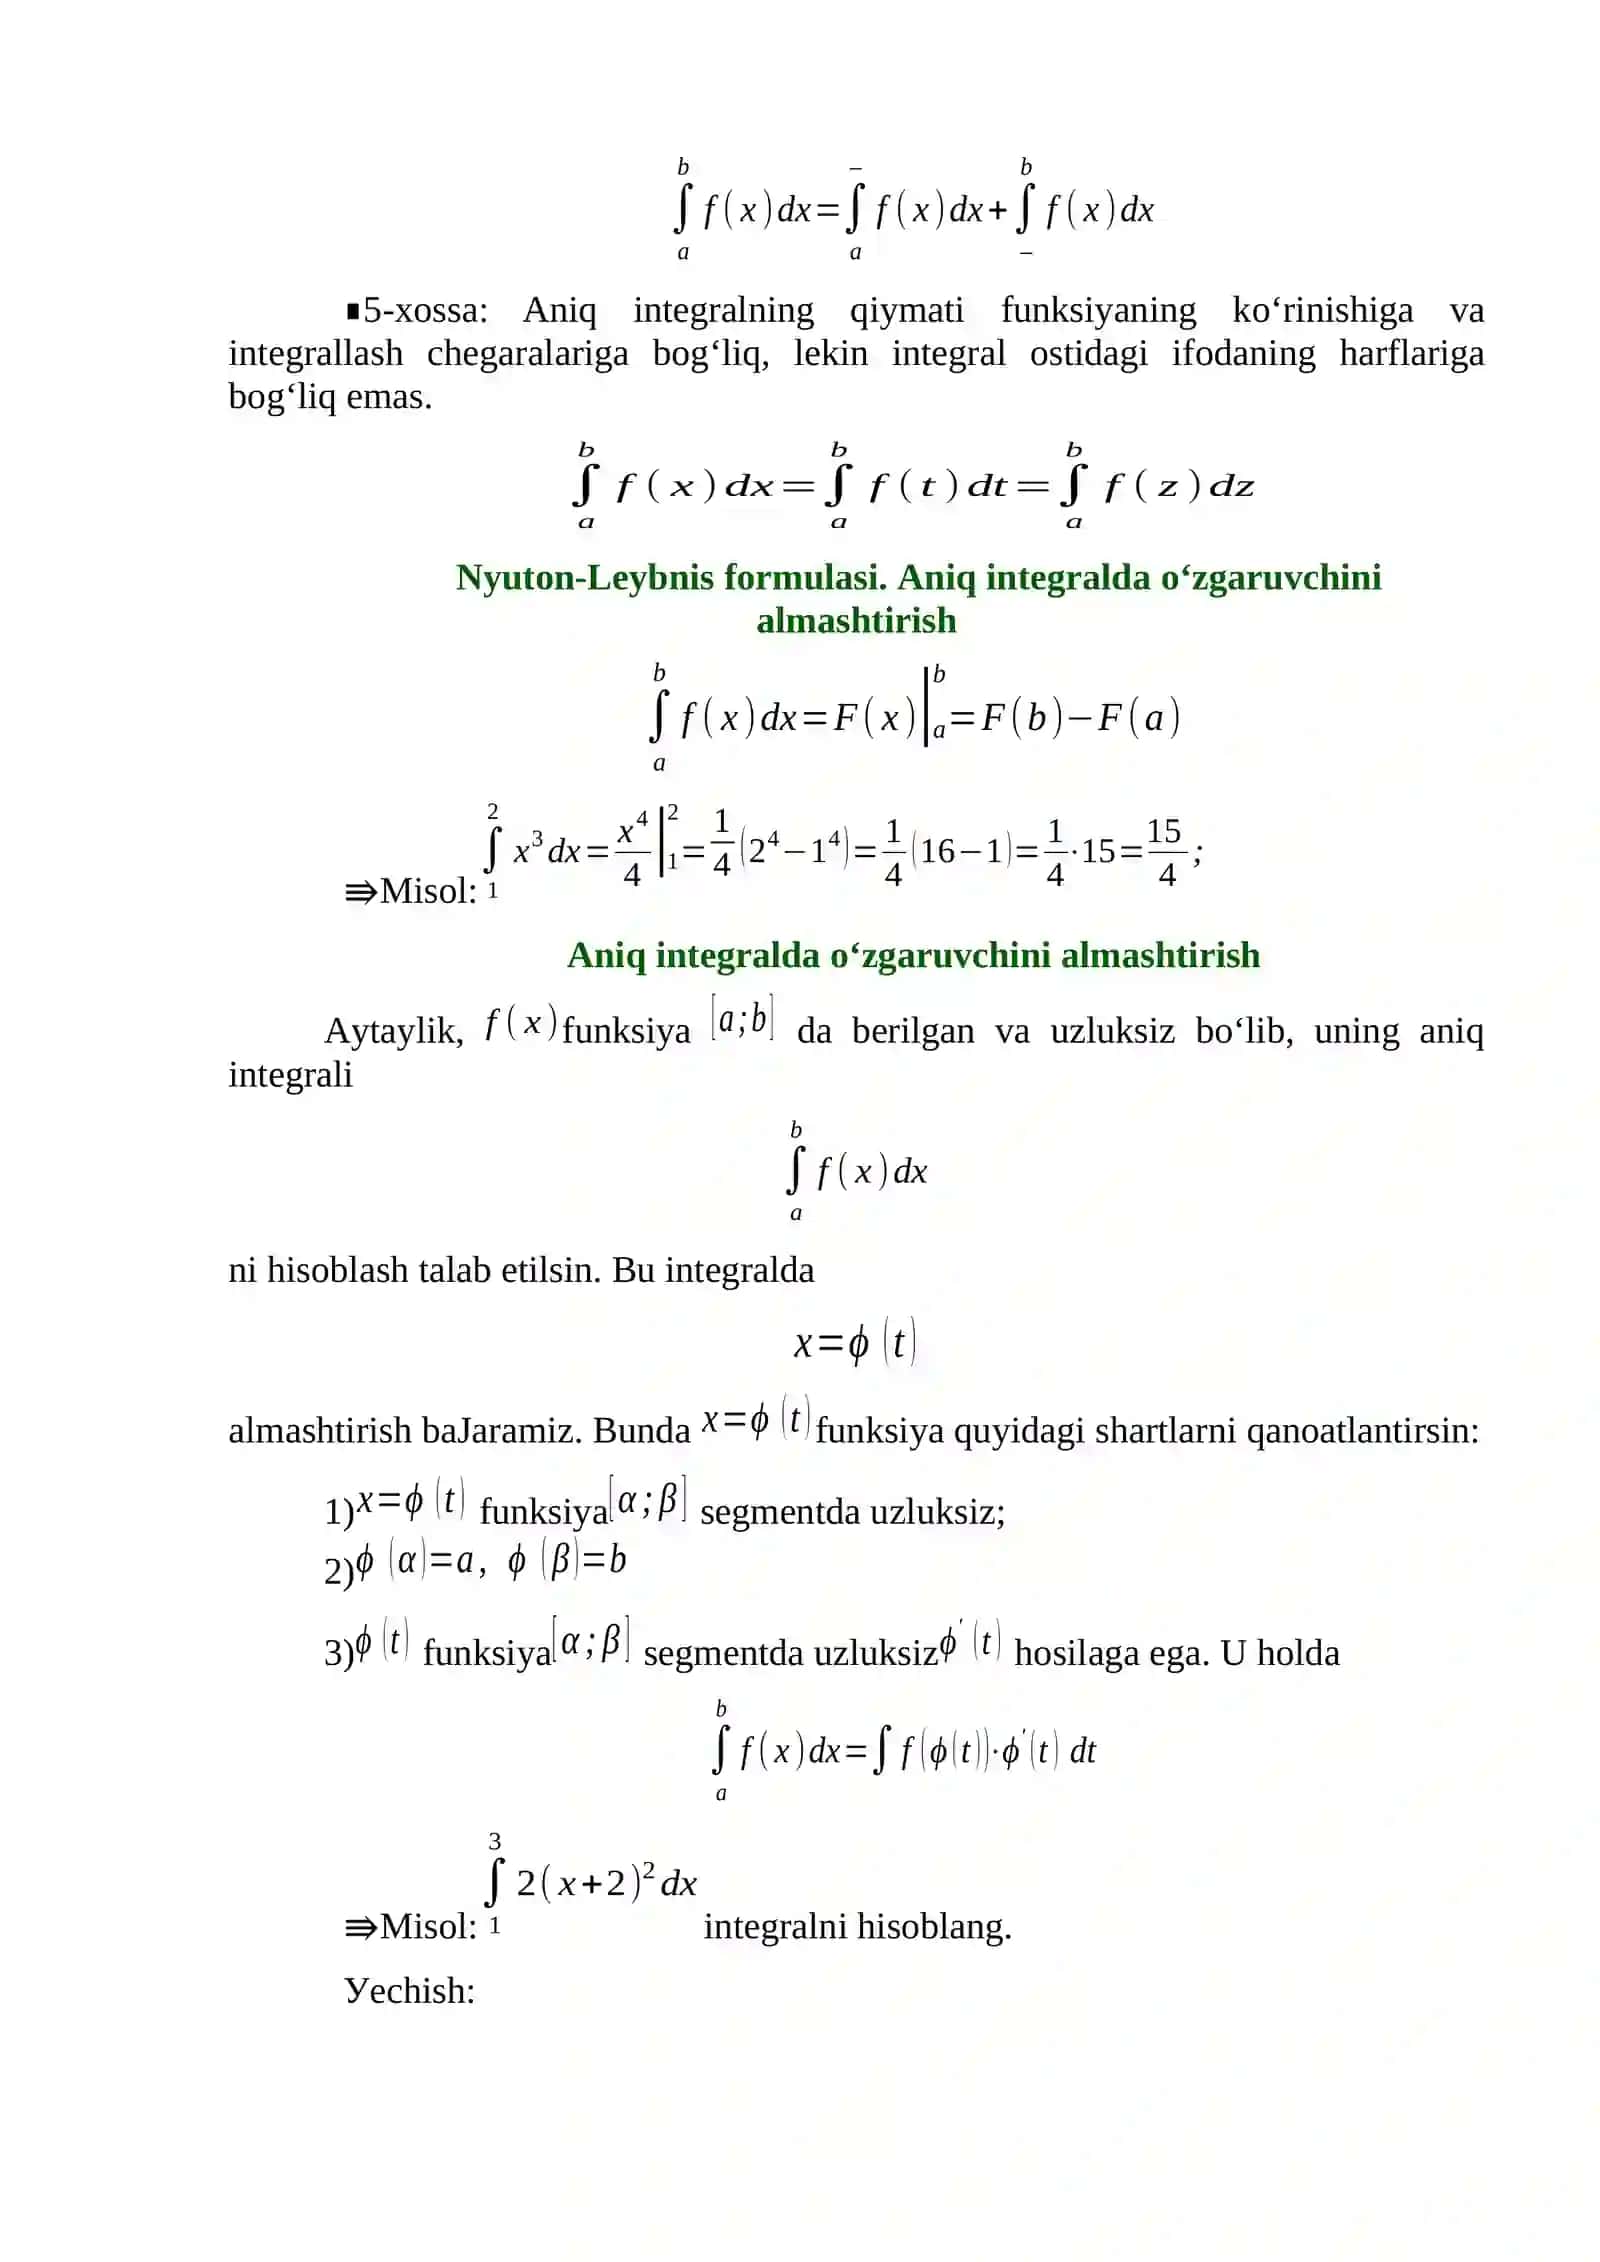 ∫_a^b f(x)dx=∫_a^− f(x)dx+∫_−^b f(x)dx
∎5-xossa: Aniq integralning qiymati funksiyaning ko‘rinishiga va
integrallash chegaralariga bog‘liq, lekin integral ostidagi ifodaning harflariga
bog‘liq emas.
∫_a^b f(x)dx=∫_a^b f(t)dt=∫_a^b f(z)dz
Nyuton-Leybnis formulasi. Aniq integralda o‘zgaruvchini
almashtirish
∫_a^b f(x)dx=F(x)|_a^b=F(b)−F(a)
⇛Misol: ∫_1^2 x^3 dx=x^4/4|_1^2=1/4(2^4−1^4)=1/4(16−1)=1/4·15=15/4;
Aniq integralda o‘zgaruvchini almashtirish
Aytaylik, f(x)funksiya [a;b] da berilgan va uzluksiz bo‘lib, uning aniq
integrali
∫_a^b f(x)dx
ni hisoblash talab etilsin. Bu integralda
x=ϕ(t)
almashtirish baJaramiz. Bunda x=ϕ(t)funksiya quyidagi shartlarni qanoatlantirsin:
1)x=ϕ(t) funksiya[α;β] segmentda uzluksiz;
2)ϕ(α)=a, ϕ(β)=b
3)ϕ(t) funksiya[α;β] segmentda uzluksizϕ′(t) hosilaga ega. U holda
∫_a^b f(x)dx=∫f(ϕ(t))·ϕ′(t) dt
⇛Misol: ∫_1^3 2(x+2)^2 dx integralni hisoblang.
Уechish: